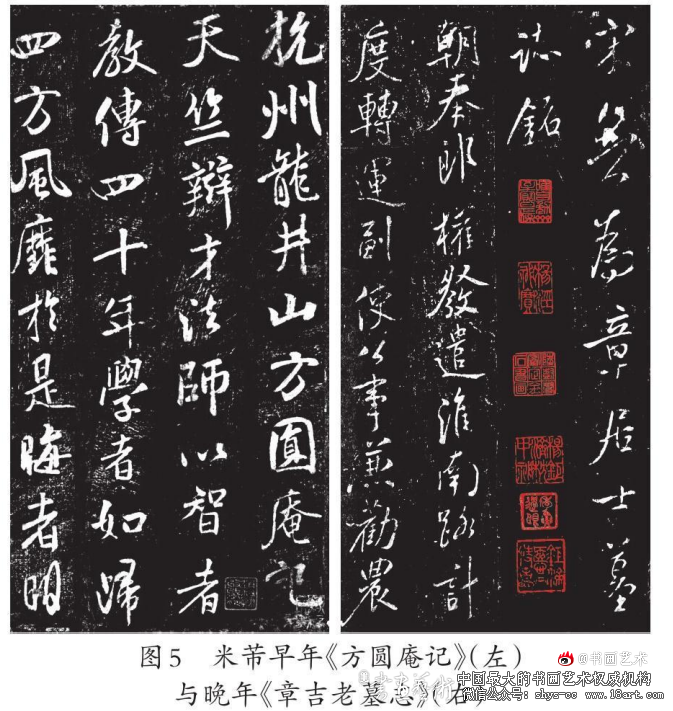 杭州龍井山方圓庵記
天竺辯才法師以智者
教傳四十年學者如歸
四方風靡於是晦者明
宋無為章居士墓
誌銘
朝奉郎權發遣淮南路計
度轉運副使公事兼勸農
图5 米芾早年《方圆庵记》(左)
与晚年《章吉老墓志》(右)
@书画艺术
中国最大的书画艺术权威机构
微信公众号: shys-cc www.18art.com